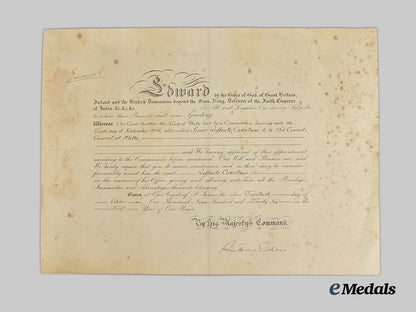 Edward by the Grace of God, of Great Britain,
Ireland and the British Dominions beyond the Seas King, Defender of the Faith, Emperor
of India, &c, &c, &c. To All and Singular Our loving Subjects
to whom these Presents shall come, Greeting
Whereas Our Good Brother the King of Italy has by a Commission bearing date the
day of September 1936, appointed Signor Raffaele Casertano to be His Consul
General at Malta
and We having approved of this appointment
according to the Commission before mentioned Our Will and Pleasure are, and
We hereby require that you do receive, countenance, and as there may be occasion
favourably assist him the said Raffaele Casertano
in the exercise of his Office, giving and allowing unto him all the Privileges,
Immunities and Advantages thereunto belonging.
Given at Our Court of St James the Twentieth day of
October One Thousand Nine Hundred and Thirty-Six in the
First Year of Our Reign.
By His Majesty's Command.
Anthony Eden
eMedals